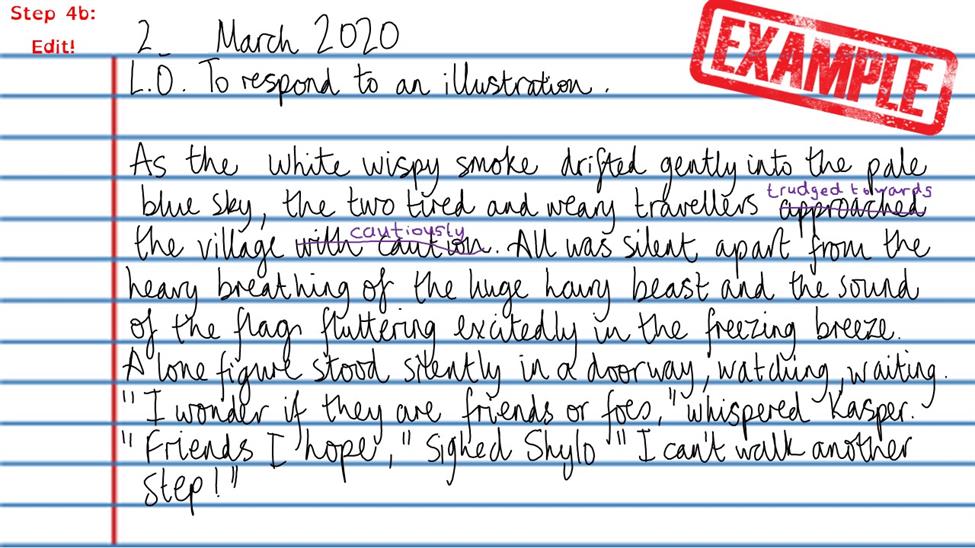 Step 4b:
Edit!
2 March 2020
EXAMPLE
L.O. To respond to an illustration.
As the white wispy smoke drifted gently into the pale
trudged towards
blue sky, the two tired and weary travellers approached
cautiously
the village with caution. All was silent apart from the
heavy breathing of the huge hairy beast and the sound
of the flags fluttering excitedly in the freezing breeze.
A lone figure stood silently in a doorway, watching, waiting.
"I wonder if they are friends or foes," whispered Kasper.
"Friends I hope," sighed Shylo "I can't walk another
step!"